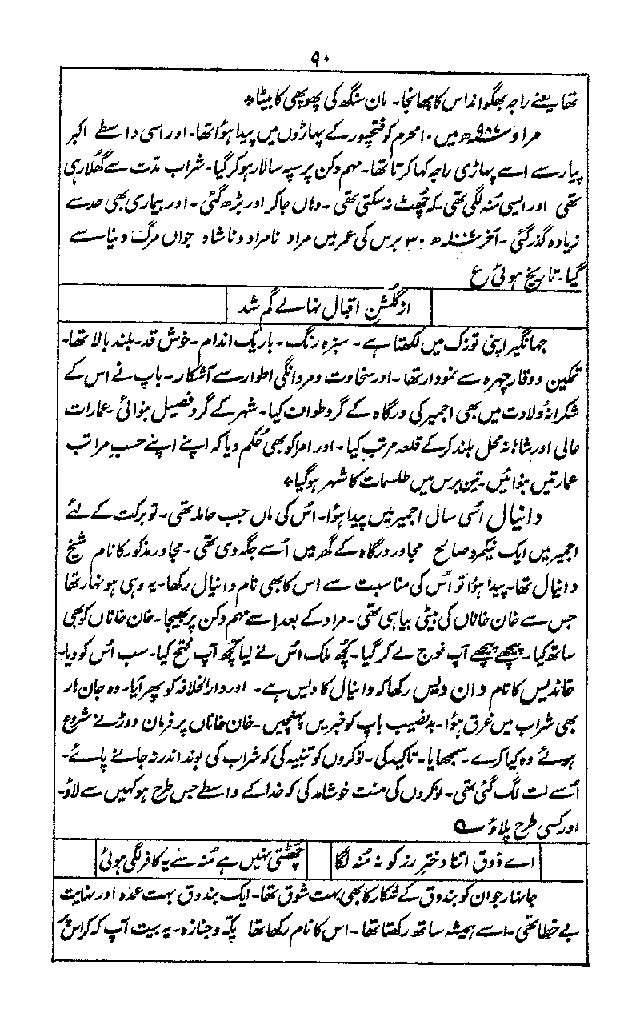 ۹۰
تھا یعنے راجہ بھگوانداس کا بھانجا۔ مان سنگھ کی پھوپھی کا بیٹا٭
مراد ۹۷۸ھ میں ۱۰ محرم کو فتحپور کے پہاڑوں میں پیدا ہوا تھا۔ اور اسی واسطے اکبر
پیار سے اسے پہاڑی راجہ کہا کرتا تھا۔ مہم دکن پر سپہ سالار ہو کر گیا۔ شراب مدت سے گھلا رہی
تھی اور ایسی مُنہ لگی تھی کہ چُھٹ نہ سکتی تھی۔ وہاں جا کر اور بڑھ گئی۔ اور بیماری بھی حد سے
زیادہ گذر گئی۔ آخر ۱۰۰۷ھ ۳۰ برس کی عمر میں مراد نامراد و ناشاد جواں مرگ دنیا سے
گیا۔ تاریخ ہوئی ع
از گلشنِ اقبال نہالے گم شد
جہانگیر اپنی توزک میں لکھتا ہے۔ سبزہ رنگ۔ باریک اندام۔ خوش قد۔ بلند بالا تھا۔
تمکین و وقار چہرہ سے نمودار تھا۔ اور سخاوت و مردانگی اطوار سے آشکار۔ باپ نے اس کے
شکرانۂ ولادت میں بھی اجمیر کی درگاہ کے گرد طواف کیا۔ شہر کے گرد فصیل بنوائی۔ عمارات
عالی اور شاہانہ محل بلند کر کے قلعہ مرتب کیا۔ اور امرا کو بھی حُکم دیا کہ اپنے اپنے حسب مراتب
عمارتیں بنوائیں۔ تین برس میں طلسمات کا شہر ہو گیا٭
دانیال اسی سال اجمیر میں پیدا ہوا۔ اس کی ماں جب حاملہ تھی۔ تو برکت کے لئے
اجمیر میں ایک نیک مرد صالح مجاور درگاہ کے گھر میں اُسے جگہ دی تھی۔ مجاور مذکور کا نام شیخ
دانیال تھا۔ پیدا ہوا تو اُس کی مناسبت سے اس کا بھی نام دانیال رکھا۔ یہ وہی ہونہار تھا
جس سے خان خاناں کی بیٹی بیاہی تھی۔ مراد کے بعد اسے مہم دکن پر بھیجا۔ خان خاناں کو بھی
ساتھ کیا۔ پیچھے پیچھے آپ فوج لے کر گیا۔ کچھ ملک اُس نے لیا کچھ آپ فتح کیا۔ سب اُس کو دیا۔
خاندیس کا نام دان دیس رکھا کہ دانیال کا دیس ہے۔ اور دار الخلافہ کو پھر آیا۔ وہ جان ہار
بھی شراب میں غرق ہوا۔ بد نصیب باپ کو خبریں پہنچیں۔ خان خاناں پر فرمان دوڑنے شروع
ہوئے وہ کیا کرے۔ سمجھایا۔ تاکید کی۔ نوکروں کو تنبیہ کی کہ شراب کی بوند اندر نہ جانے پائے۔
اُسے لت لگ گئی تھی۔ نوکروں کی منت خوشامد کی کہ خدا کے واسطے جس طرح ہو کہیں سے لاؤ۔
اور کسی طرح پلاؤ
اے ذوق اتنا دخترِ رز کو نہ مُنہ لگا چھٹتی نہیں ہے مُنہ سے یہ کافر لگی ہوئی
جانہار جوان کو بندوق کے شکار کا بھی بہت شوق تھا۔ ایک بندوق بہت عمدہ اور نہایت
بے خطا تھی۔ اسے ہمیشہ ساتھ رکھتا تھا۔ اس کا نام رکھا تھا یکہ و جنازہ۔ یہ بیت آپ کہہ کر اس